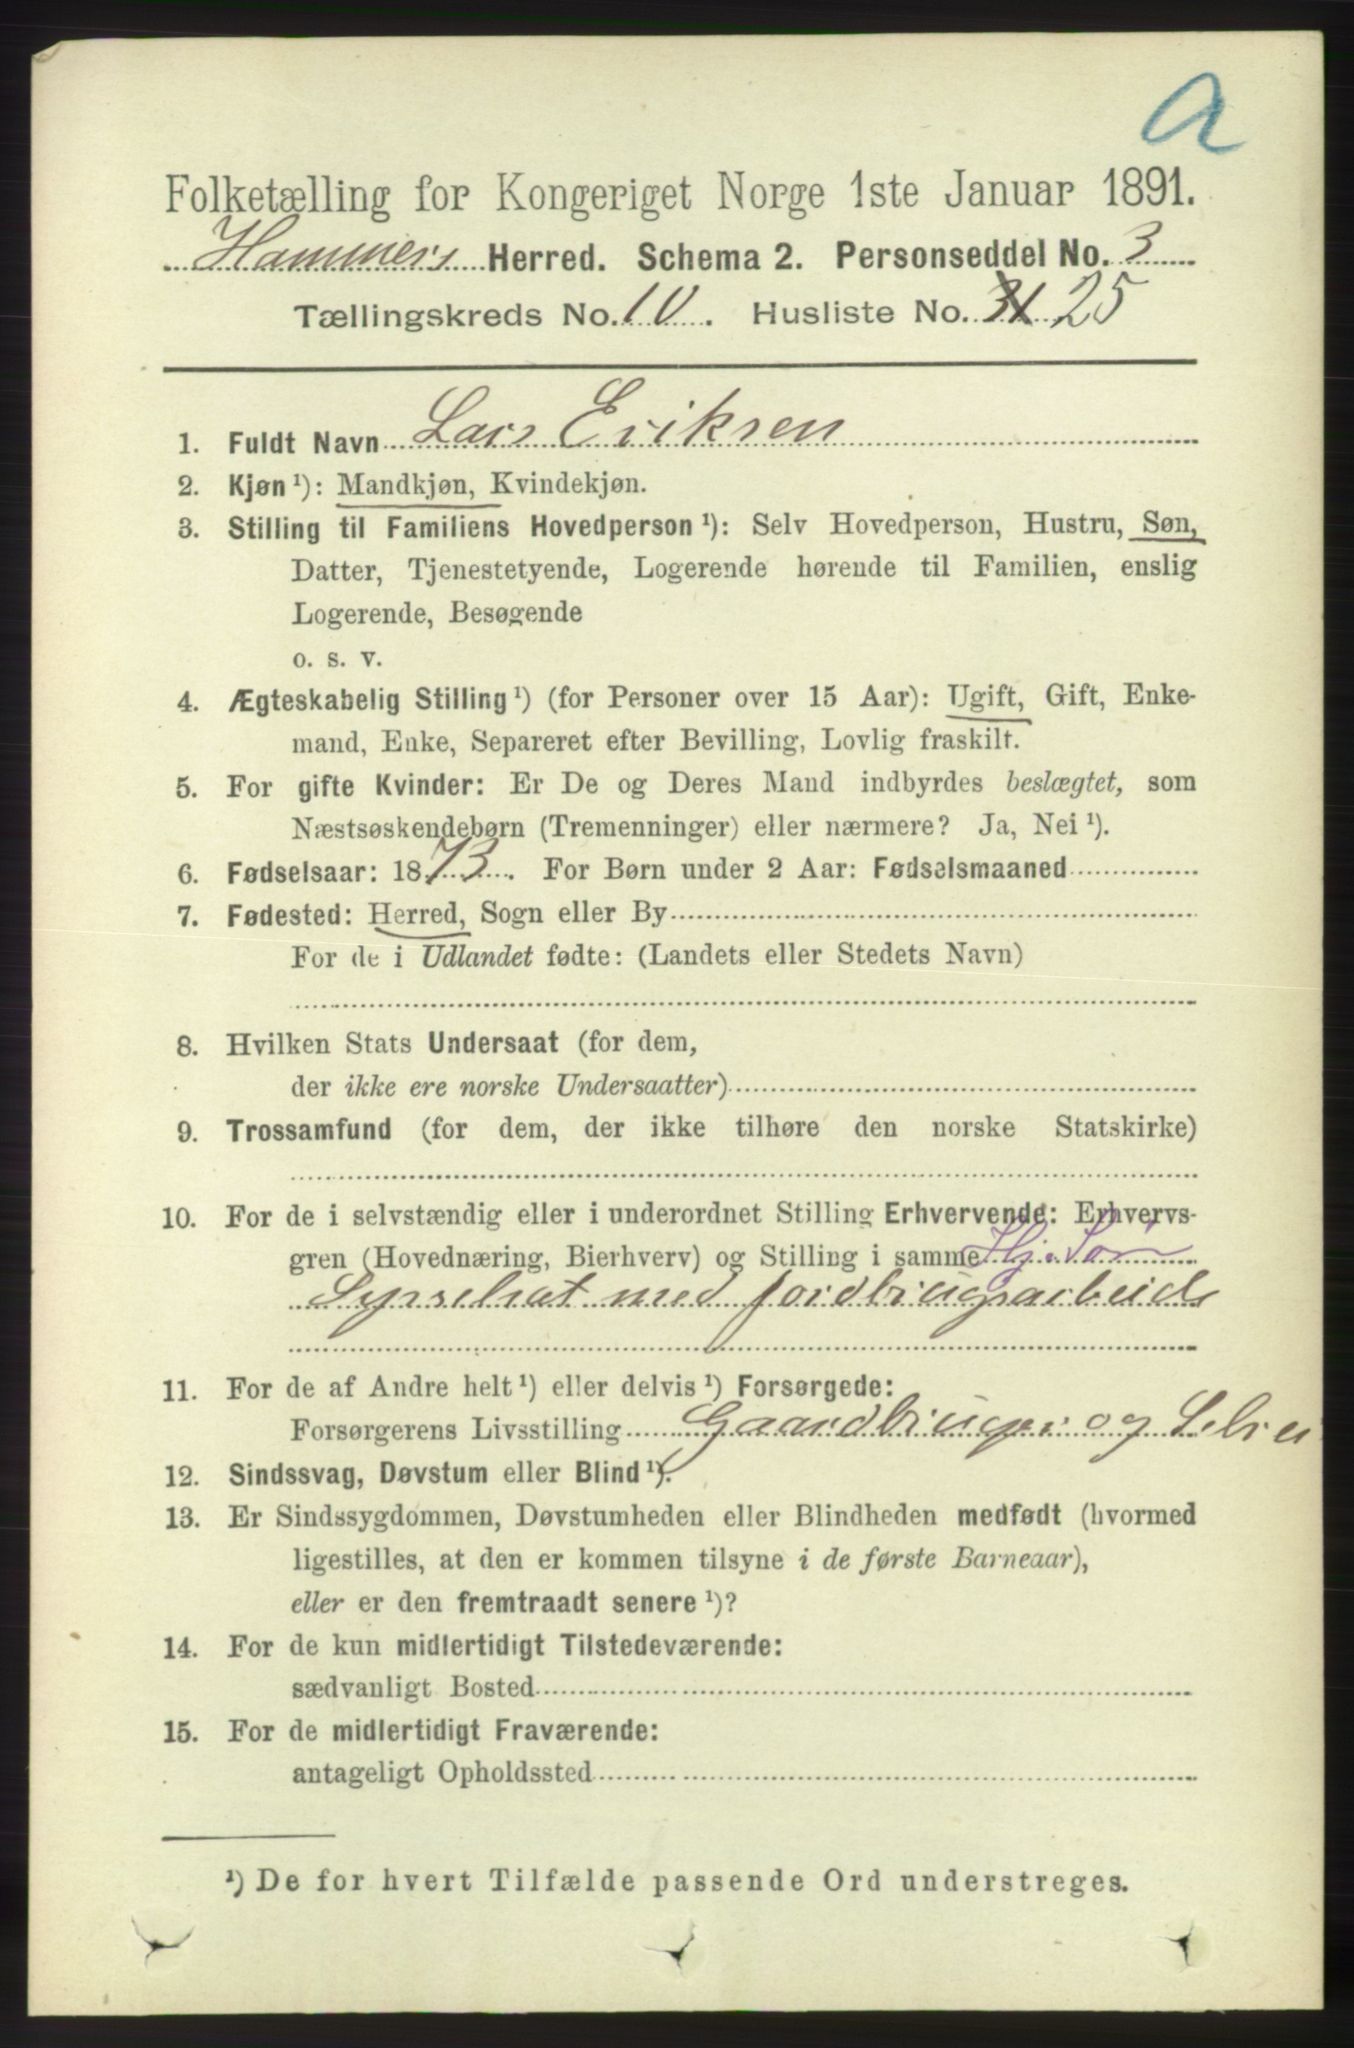 a
Folketælling for Kongeriget Norge 1ste Januar 1891.
Hammers Herred. Schema 2. Personseddel No. 3
Tællingskreds No. 10. Husliste No. 31 25
1. Fuldt Navn Lars Eriksen
2. Kjøn ¹): Mandkjøn, Kvindekjøn.
3. Stilling til Familiens Hovedperson ¹): Selv Hovedperson, Hustru, Søn,
Datter, Tjenestetyende, Logerende hørende til Familien, enslig
Logerende, Besøgende
o. s. v.
4. Ægteskabelig Stilling ¹) (for Personer over 15 Aar): Ugift, Gift, Enke-
mand, Enke, Separeret efter Bevilling, Lovlig fraskilt.
5. For gifte Kvinder: Er De og Deres Mand indbyrdes beslægtet, som
Næstsøskendebørn (Tremenninger) eller nærmere? Ja, Nei ¹).
6. Fødselsaar: 1873. For Børn under 2 Aar: Fødselsmaaned
7. Fødested: Herred, Sogn eller By
For de i Udlandet fødte: (Landets eller Stedets Navn)
8. Hvilken Stats Undersaat (for dem,
der ikke ere norske Undersaatter)
9. Trossamfund (for dem, der ikke tilhøre den norske Statskirke)
10. For de i selvstændig eller i underordnet Stilling Erhvervende: Erhvervs-
gren (Hovednæring, Bierhverv) og Stilling i samme Hj. Søn
Sysselsat med jordbrugsarbeide
11. For de af Andre helt ¹) eller delvis ¹) Forsørgede:
Forsørgerens Livsstilling Gaardbruger og Selvei
12. Sindssvag, Døvstum eller Blind ¹).
13. Er Sindssygdommen, Døvstumheden eller Blindheden medfødt (hvormed
ligestilles, at den er kommen tilsyne i de første Barneaar),
eller er den fremtraadt senere ¹)?
14. For de kun midlertidigt Tilstedeværende:
sædvanligt Bosted
15. For de midlertidigt Fraværende:
antageligt Opholdssted
¹) De for hvert Tilfælde passende Ord understreges.